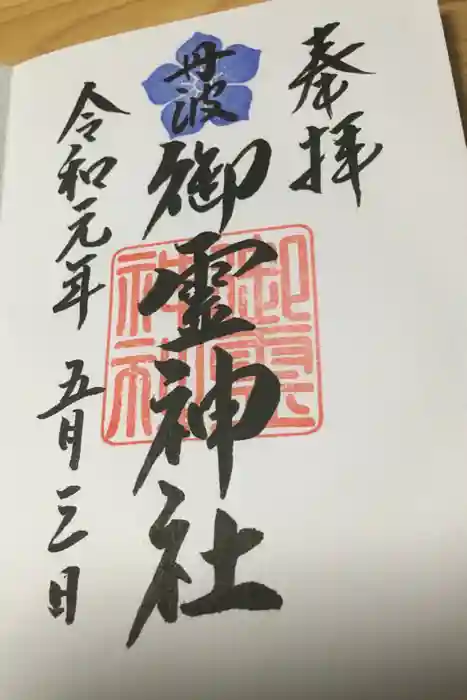 奉拝
丹波
御霊神社
御霊
神社
令和元年 五月三日